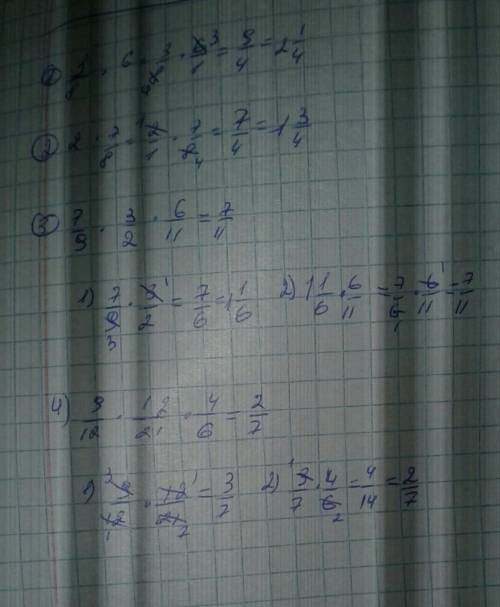 1) 3/8 · 6 = 3/8 · 6/1 = 9/4 = 2 1/4
2) 2 · 7/8 = 2/1 · 7/8 = 7/4 = 1 3/4
3) 7/9 · 3/2 · 6/11 = 7/11
1) 7/9 · 3/2 = 7/6 = 1 1/6 2) 1 1/6 · 6/11 = 7/6 · 6/11 = 7/11
4) 9/12 · 12/21 · 4/6 = 2/7
1) 9/12 · 12/21 = 3/7 2) 3/7 · 4/6 = 4/14 = 2/7